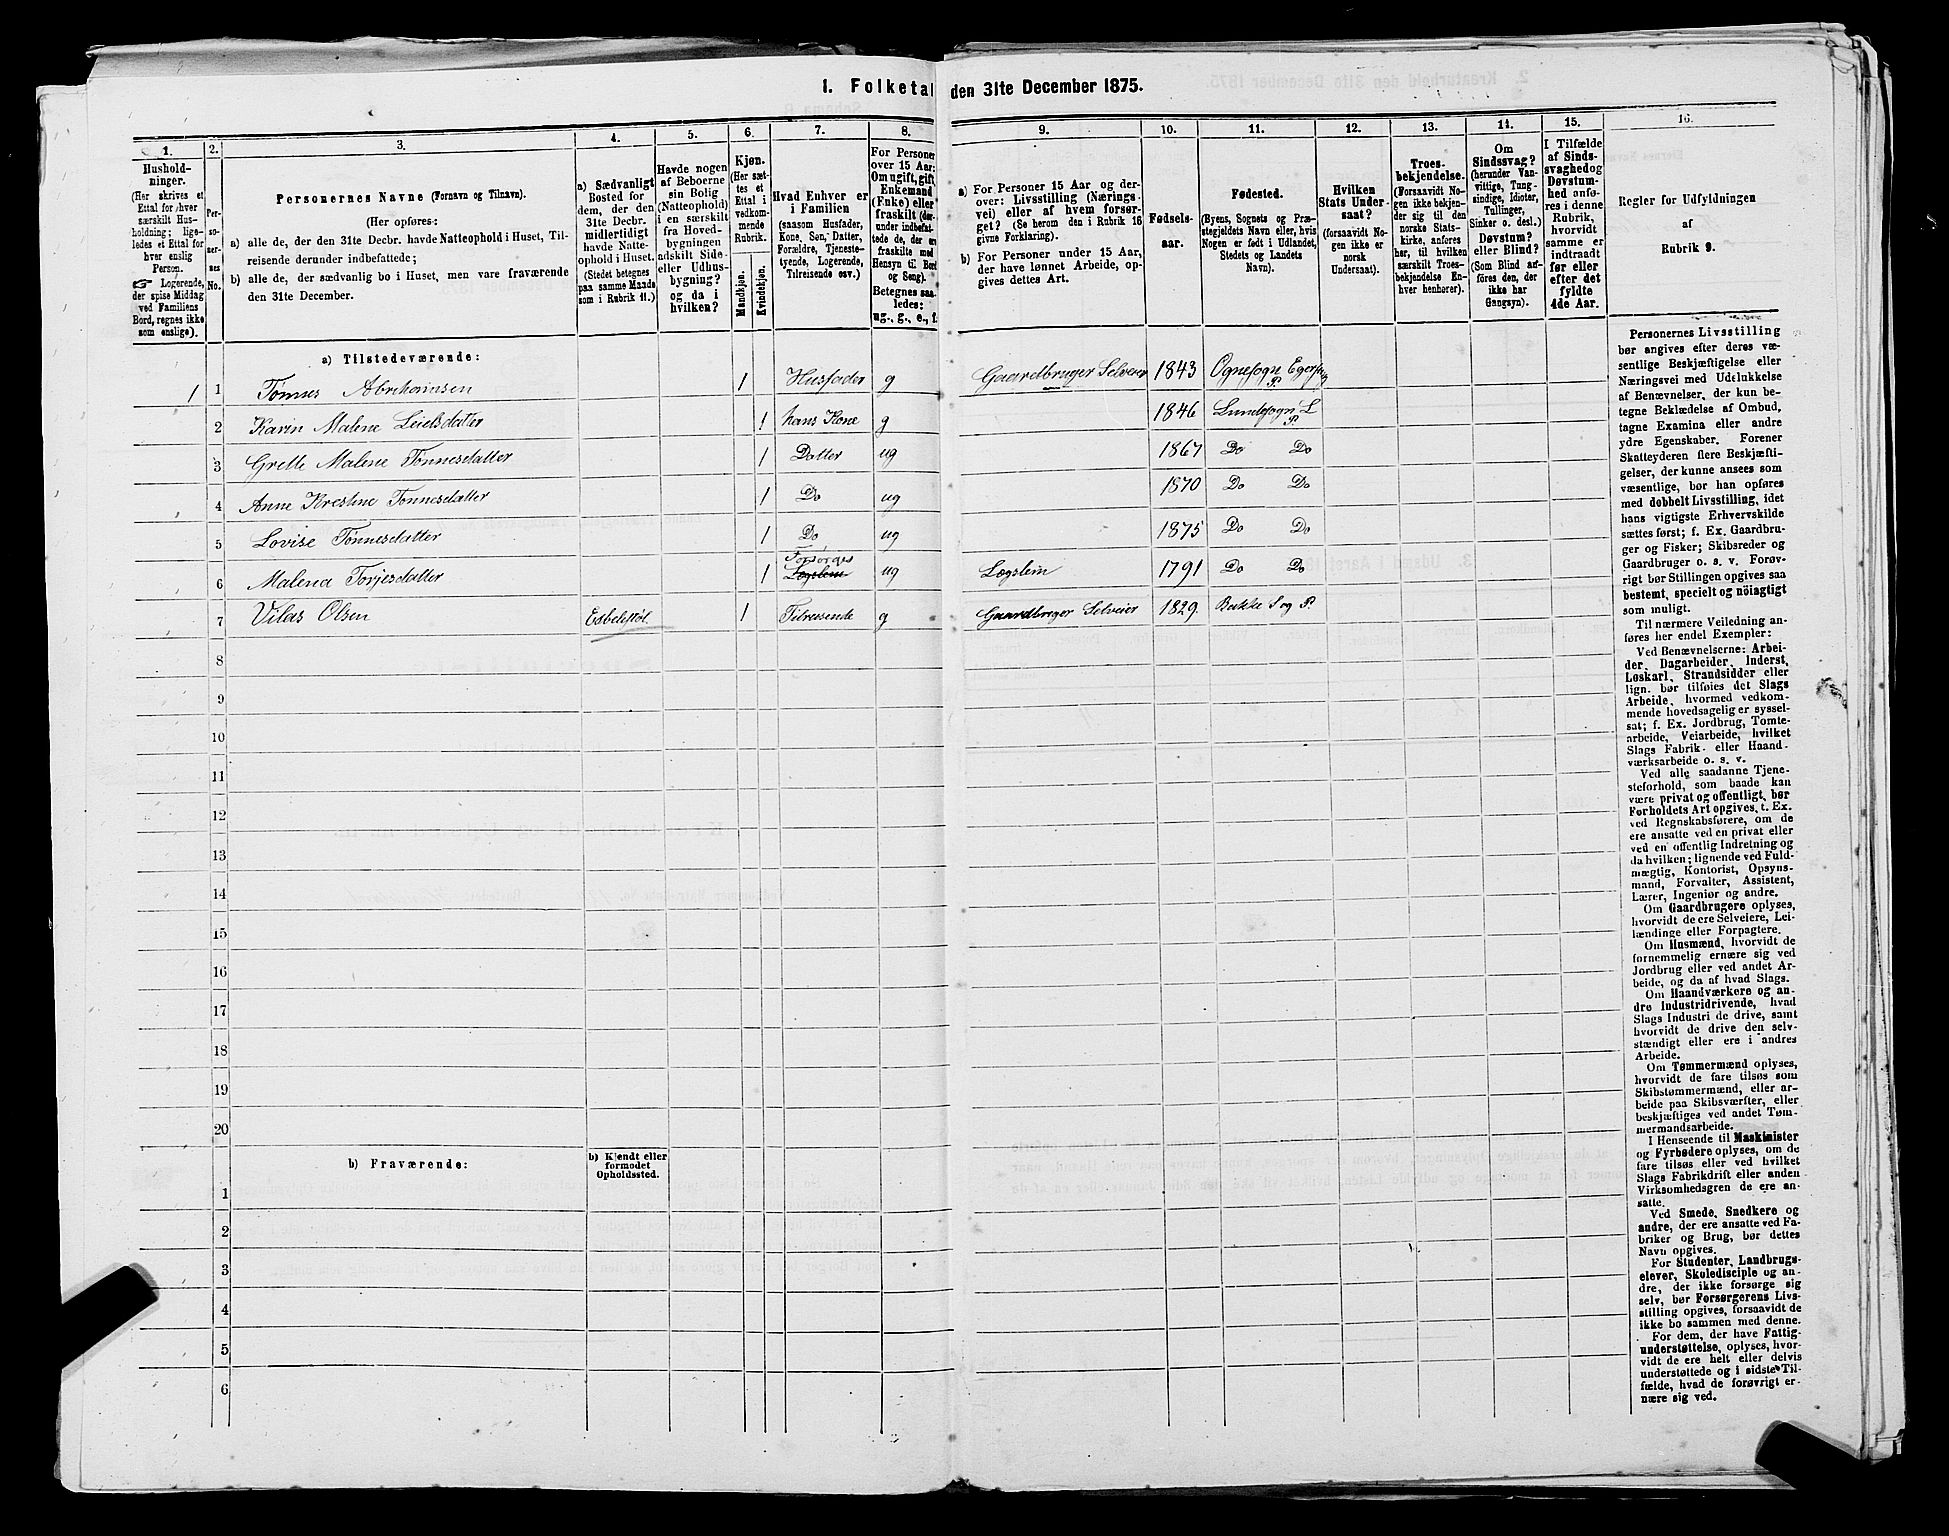 1. Folketal den 31te December 1875.
1. 2. 3. 4. 5. 6. 7. 8. 9. 10. 11. 12. 13. 14. 15. 16.
Hushold-
ninger.
(Her skrives et
Ettal for hver
særskilt Hus-
holdning; lige-
ledes et Ettal for
hver enslig
Person.
☞ Logerende,
der spise Middag
ved Familiens
Bord, regnes ikke
som enslige).
Per-
so-
ner-
nes
No.
Personernes Navne (Fornavn og Tilnavn).
(Her opføres:
a) alle de, der den 31te Decbr. havde Natteophold i Huset, Til-
reisende derunder indbefattede;
b) alle de, der sædvanlig bo i Huset, men vare fraværende
den 31te December.
a) Sædvanligt
Bosted for
dem, der den
31te Decbr.
midlertidigt
havde Natte-
ophold i Huset.
(Stedet betegnes
paa samme Maade
som i Rubrik 11.)
Havde nogen
af Beboerne
sin Bolig
(Natteophold)
i en særskilt
fra Hoved-
bygningen
adskilt Side-
eller Udhus-
bygning?
og da i
hvilken?
Kjøn.
(Her sæt-
tes et
Ettal i
vedkom-
mende
Rubrik.
Mandkjøn.
Kvindekjøn.
Hvad Enhver er
i Familien
(saasom Husfader,
Kone, Søn, Datter,
Forældre, Tjeneste-
tyende, Logerende,
Tilreisende osv.)
For Personer
over 15 Aar:
Om ugift, gift,
Enkemand
(Enke) eller
fraskilt (der-
under indbefat-
tede de, der er
fraskilte med
Hensyn til Bord
og Seng).
Betegnes saa-
ledes:
ug., g., e., f.
a) For Personer 15 Aar og der-
over: Livsstilling (Nærings-
vei) eller af hvem forsør-
get? (Se herom den i Rubrik 16
givne Forklaring).
b) For Personer under 15 Aar,
der have lønnet Arbeide, op-
gives dettes Art.
Fødsels-
aar.
Fødested.
(Byens, Sognets og Præ-
stegjeldets Navn eller, hvis
Nogen er født i Udlandet,
Stedets og Landets
Navn).
Hvilken
Stats Under-
saat?
(forsaavidt No-
gen ikke er
norsk
Undersaat).
Troes-
bekjendelse.
(Forsaavidt No-
gen ikke bekjen-
der sig til den
norske Stats-
kirke, anføres
her, til hvilken
særskilt Troes-
bekjendelse En-
hver henhører).
Om
Sindssvag?
(herunder Van-
vittige, Tung-
sindige, Idioter,
Tullinger,
Sinker o. desl.)
Døvstum?
eller Blind?
(Som Blind an-
føres den, der
ikke har
Gangsyn).
I Tilfælde
af Sinds-
svaghed og
Døvstum-
hed anfø-
res i denne
Rubrik,
hvorvidt
samme er
indtraadt
før eller
efter det
fyldte
4de Aar.
Regler for Udfyldningen
af
Rubrik 9.
a) Tilstedeværende:
1 1 Tønnes Abrahamsen 1 Husfader g Gaardbruger Selveier 1843 Ognesogn P.
2 Karen Malene Leielsdatter 1 hans Kone g 1846 Lundesogn L P.
3 Grette Malene Tønnesdatter 1 Datter ug 1867 Do Do
4 Anne Krestine Tønnesdatter 1 Do ug 1870 Do Do
5 Lovise Tønnesdatter 1 Do ug 1875 Do Do
Forsørges
6 Malena Torjesdatter 1 Lægslem ug Lægslem 1791 Do Do
7 Vilas Olsen 1 Tilreisende g Gaardbruger Selveier 1829. Bakke S og P.
8
9
10
11
12
13
14
15
16
17
18
19
20
b) Fraværende:
b) Kjendt eller
formodet
Opholdssted.
1
2
3
4
5
6
Personernes Livsstilling
bør angives efter deres væ-
sentlige Beskjæftigelse eller
Næringsvei med Udelukkelse
af Benævnelser, der kun be-
tegne Beklædelse af Ombud,
tagne Examina eller andre
ydre Egenskaber. Forener
Skatteyderen flere Beskjæfti-
gelser, der kunne ansees som
væsentlige, bør han opføres
med dobbelt Livsstilling, idet
hans vigtigste Erhvervskilde
sættes først; f. Ex. Gaardbru-
ger og Fisker; Skibsreder og
Gaardbruger o. s. v. Forøv-
rigt bør Stillingen opgives saa
bestemt, specielt og nöiagtigt
som muligt.
Til nærmere Veiledning an-
føres her endel Exempler:
Ved Benævnelserne: Arbei-
der, Dagarbeider, Inderst,
Løskarl, Strandsidder eller
lign. bør tilføies det Slags
Arbeide, hvormed vedkom-
mende hovedsagelig er syssel-
sat; f. Ex. Jordbrug, Tomte-
arbeide, Veiarbeide, hvilket
Slags Fabrik- eller Haand-
værksarbeide o. s. v.
Ved alle saadanne Tjene-
steforhold, som baade kan
være privat og offentligt, bør
Forholdets Art opgives, t. Ex.
ved Regnskabsførere, om de
ere ansatte ved en privat eller
ved en offentlig Indretning og
da hvilken; lignende ved Fuld-
mægtig, Kontorist, Opsyns-
mand, Forvalter, Assistent,
Lærer, Ingeniør og andre.
Om Gaardbrugere oplyses,
hvorvidt de ere Selveiere, Lei-
lændinge eller Forpagtere.
Om Husmænd, hvorvidt de
fornemmelig ernære sig ved
Jordbrug eller ved andet Ar-
beide, og da af hvad Slags.
Om Haandværkere og an-
dre Industridrivende, hvad
Slags Industri de drive, samt
hvorvidt de drive den selv-
stændigt eller ere i andres
Arbeide.
Om Tømmermænd oplyses,
hvorvidt de fare tilsøs som
Skibstømmermænd, eller ar-
beide paa Skibsværfter, eller
beskjæftiges ved andet Tøm-
mermandsarbeide.
I Henseende til Maskinister
og Fyrbødere oplyses, om de
fare tilsøs eller ved hvilket
Slags Fabrikdrift eller anden
Virksomhedsgren de ere an-
satte.
Ved Smede, Snedkere og
andre, der ere ansatte ved Fa-
briker og Brug, bør dettes
Navn opgives.
For Studenter, Landbrugs-
elever, Skoledisciple og an-
dre, der ikke forsørge sig
selv, bør Forsørgerens Livs-
stilling opgives, forsaavidt de
ikke bo sammen med denne.
For dem, der have Fattig-
understøttelse, oplyses, hvor-
vidt de ere helt eller delvis
understøttede og i sidste Til-
fælde, hvad de forøvrigt er-
nære sig ved.